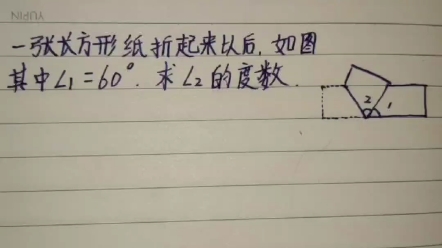 YUPIN
一张长方形纸折起来以后,如图
其中∠1=60°.求∠2的度数.
2 1